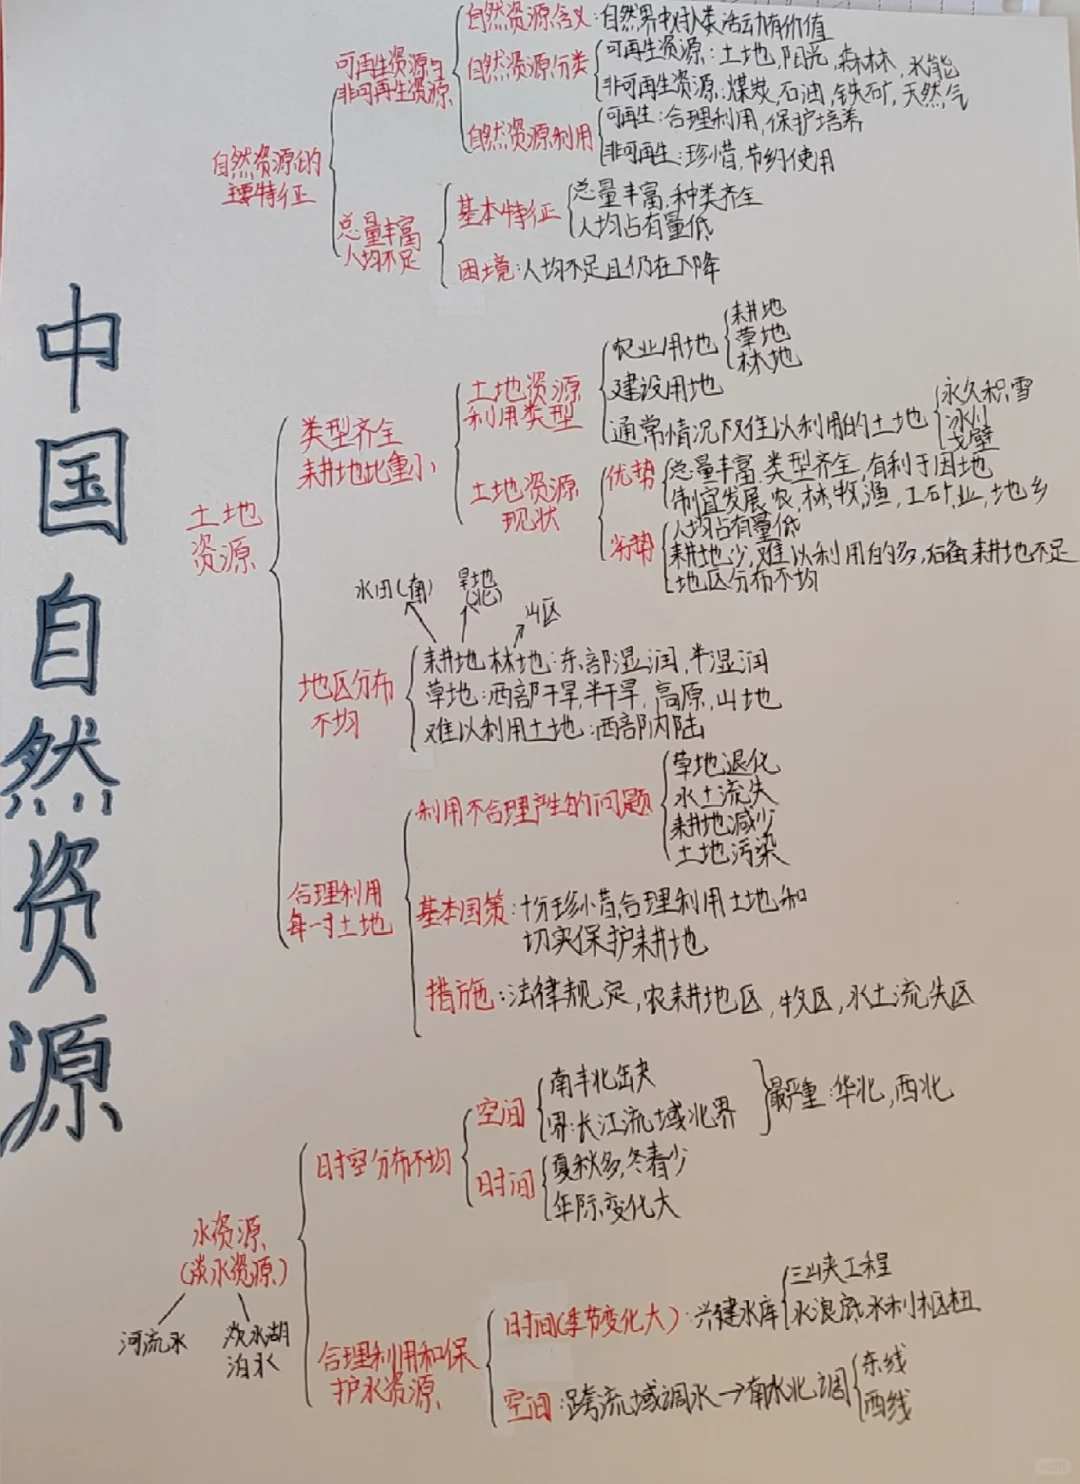 中国自然资源
自然资源的
主要特征
可再生资源与
非可再生资源
自然资源含义:自然界中对人类活动有价值
自然资源分类
可再生资源:土地,阳光,森林,水能
非可再生资源:煤炭,石油,铁矿,天然气
自然资源利用
可再生:合理利用,保护培养
非可再生:珍惜,节约使用
总量丰富
人均不足
基本特征
总量丰富,种类齐全
人均占有量低
困境:人均不足且仍在下降
土地
资源
类型齐全
耕地比重小
土地资源
利用类型
农业用地
耕地
草地
林地
建设用地
通常情况下难以利用的土地
永久积雪
冰川
戈壁
土地资源
现状
优势
总量丰富,类型齐全,有利于因地
制宜发展农,林,牧,渔,工矿业,地乡
劣势
人均占有量低
耕地少,难以利用的多,后备耕地不足
地区分布不均
地区分布
不均
水田(南)
旱地
(北)
山区
耕地林地:东部湿润,半湿润
草地:西部干旱,半干旱,高原,山地
难以利用土地:西部内陆
合理利用
每一寸土地
利用不合理产生的问题
草地退化
水土流失
耕地减少
土地污染
基本国策:十分珍惜,合理利用土地和
切实保护耕地
措施:法律规定,农耕地区,牧区,水土流失区
水资源
(淡水资源)
河流水
淡水湖
泊水
时空分布不均
空间
南丰北缺
界:长江流域北界
最严重:华北,西北
时间
夏秋多,冬春少
年际变化大
合理利用和保
护水资源
时间(季节变化大):兴建水库
三峡工程
水浪底水利枢纽
空间:跨流域调水→南水北调
东线
西线